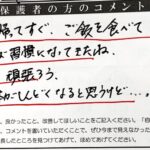 保護者の方のコメント
帰ってすぐ、ご飯を食べて
習慣になってきたね、
頑張ろう、
しんどくなると思うけど…、
良かったこと、改善してほしいことをご記入ください。「自
コメントを書いていただくことで、ぜひ今まで見えなかった
ところを見つけてあげて、ほめてあげてください。